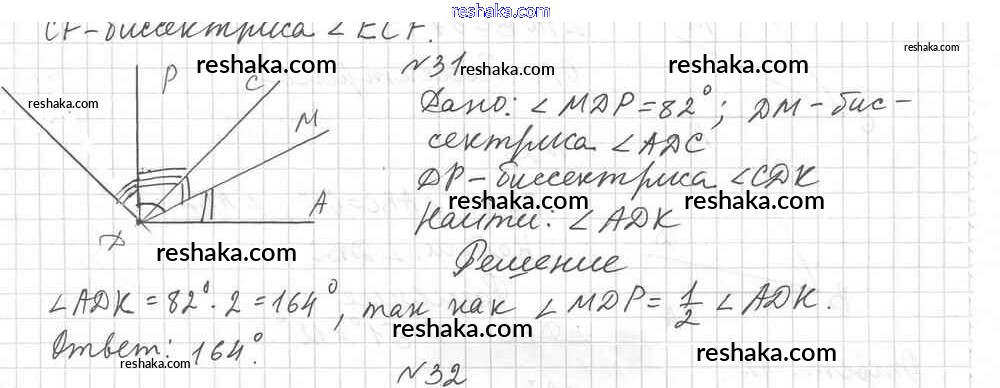 reshaka.com
CF-биссектриса ∠ECF.
reshaka.com
N31 reshaka.com
reshaka.com
P
C
reshaka.com
M
A
D
Дано: ∠MDP=82°; DM-бис-
сектриса ∠ADC
reshaka.com
DP-биссектриса ∠CDK
reshaka.com
reshaka.com
Найти: ∠ADK
reshaka.com
reshaka.com
Решение
∠ADK=82°·2=164°, так как ∠MDP=1/2∠ADK.
reshaka.com
reshaka.com
Ответ: 164°.
reshaka.com
reshaka.com
N32